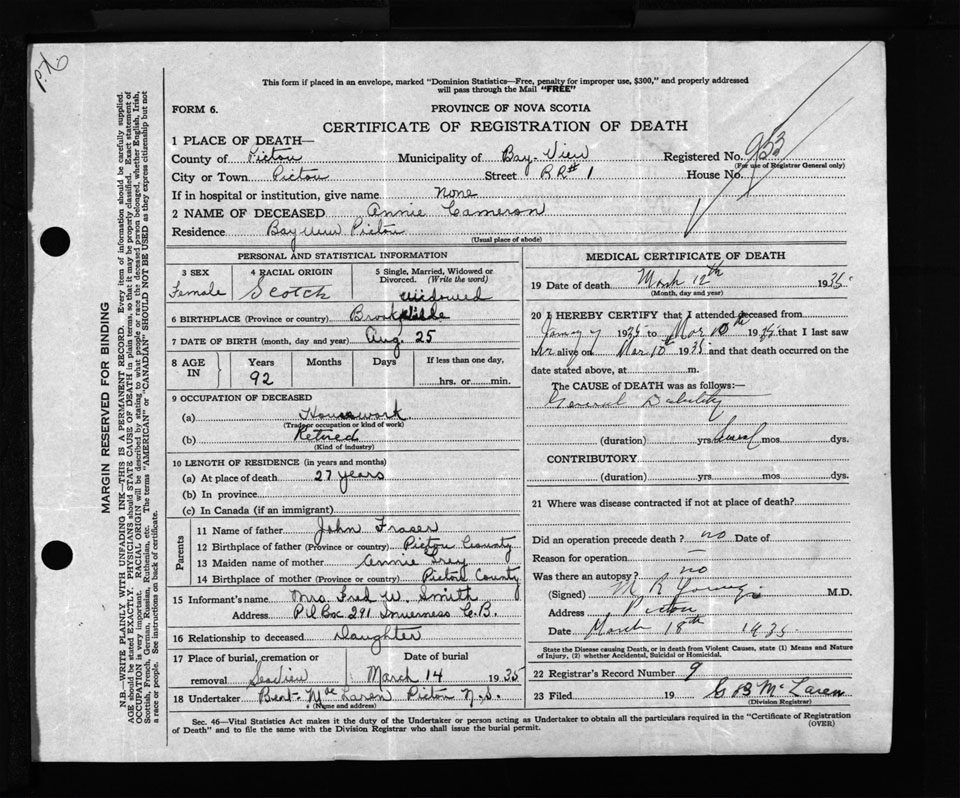 This form if placed in an envelope, marked "Dominion Statistics—Free, penalty for improper use, $300," and properly addressed
will pass through the Mail "FREE"
FORM 6.
PROVINCE OF NOVA SCOTIA
CERTIFICATE OF REGISTRATION OF DEATH
1 PLACE OF DEATH—
County of Pictou Municipality of Bay-View Registered No. 953
(For use of Registrar General only)
City or Town Pictou Street RR#1 House No.
If in hospital or institution, give name None
2 NAME OF DECEASED Annie Cameron
Residence Bayview Pictou
(Usual place of abode)
PERSONAL AND STATISTICAL INFORMATION
3 SEX Female
4 RACIAL ORIGIN Scotch
5 Single, Married, Widowed or Divorced. (Write the word) Widowed
6 BIRTHPLACE (Province or country)
7 DATE OF BIRTH (month, day and year) Aug. 25
8 AGE IN Years 92 Months Days If less than one day, hrs. or min.
9 OCCUPATION OF DECEASED
(a) Housework
(Trade or occupation or kind of work)
(b) Retired
(Kind of industry)
10 LENGTH OF RESIDENCE (in years and months)
(a) At place of death 27 years
(b) In province
(c) In Canada (if an immigrant)
Parents
11 Name of father John Fraser
12 Birthplace of father (Province or country) Pictou County
13 Maiden name of mother Annie
14 Birthplace of mother (Province or country) Pictou County
15 Informant's name Mrs. Fred W. Smith
Address P.O. Box 291 Inverness C.B.
16 Relationship to deceased Daughter
17 Place of burial, cremation or removal
Date of burial March 14 1935
18 Undertaker Bent McLaren Pictou N.S.
(Name and address)
MEDICAL CERTIFICATE OF DEATH
19 Date of death March 12th 1935
(Month, day and year)
20 I HEREBY CERTIFY that I attended deceased from
1935 to Mar 10th 1935 that I last saw
her alive on Mar 10th 1935 and that death occurred on the
date stated above, at m.
The CAUSE of DEATH was as follows:—
General Debility
(duration) yrs. Several mos. dys.
CONTRIBUTORY
(duration) yrs. mos. dys.
21 Where was disease contracted if not at place of death?
Did an operation precede death? no Date of
Reason for operation —
Was there an autopsy? no
(Signed) M R Young M.D.
Address Pictou
Date March 18th 1935
State the Disease causing Death, or in death from Violent Causes, state (1) Means and Nature
of Injury, (2) whether Accidental, Suicidal or Homicidal.
22 Registrar's Record Number 9
23 Filed 19 McLaren
(Division Registrar)
Sec. 46—Vital Statistics Act makes it the duty of the Undertaker or person acting as Undertaker to obtain all the particulars required in the "Certificate of Registration
of Death" and to file the same with the Division Registrar who shall issue the burial permit.
(OVER)
MARGIN RESERVED FOR BINDING
N.B.—WRITE PLAINLY WITH UNFADING INK—THIS IS A PERMANENT RECORD. Every item of information should be carefully supplied.
AGE should be stated EXACTLY. PHYSICIANS should STATE CAUSE OF DEATH in plain terms, so that it may be properly classified. Exact statement of
OCCUPATION is very important. RACIAL ORIGIN will be described by stating to what people or race the deceased person belonged, whether English, Irish,
Scottish, French, German, Russian, Ruthenian, etc. The terms "AMERICAN" or "CANADIAN" SHOULD NOT BE USED as they express citizenship but not
a race or people. See instructions on back of certificate.